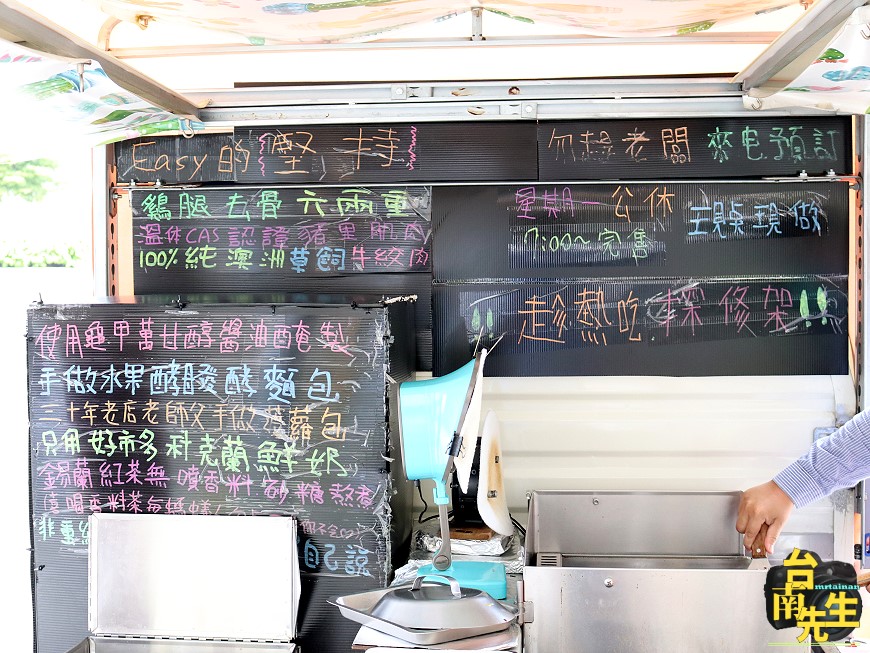 Easy的堅持
勿趕老闆 來电預訂
鷄腿去骨六兩重
溫体CAS認證豬里肌肉
100%純澳洲草飼牛絞肉
星期一公休
7:00~完售
現做
趁熱吃
使用龜甲萬甘醇醬油醃製
手做水果酵發酵麵包
三十年老店老師父手做菠蘿包
只用好市多科克蘭鮮奶
錫蘭紅茶無噴香料 砂糖熬煮
噴香料茶
非
自己
台南先生
mrtainan